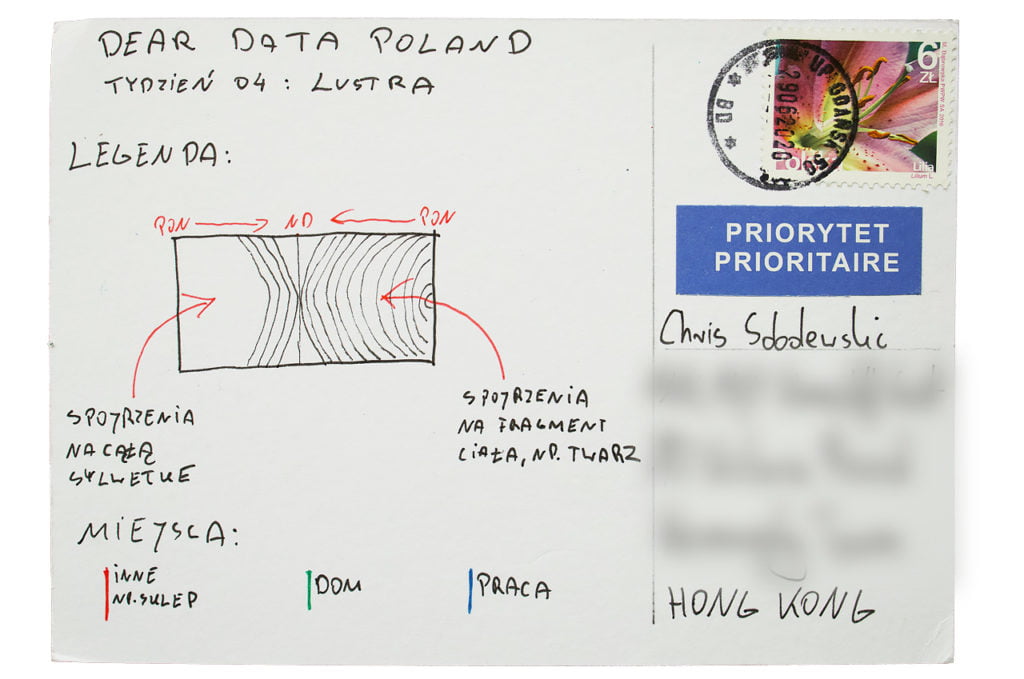 DEAR DATA POLAND
TYDZIEŃ 04 : LUSTRA
LEGENDA:
PON ND PON
SPOJRZENIA
NA CAŁĄ
SYLWETKE
SPOJRZENIA
NA FRAGMENT
CIAŁA, NP. TWARZ
MIEJSCA:
INNE
NP. SKLEP
DOM
PRACA
UP GDAŃSK 50
29062020
BD
6
ZŁ
Lilia
Lilium L.
PRIORYTET
PRIORITAIRE
Chris Sobolewski
HONG KONG